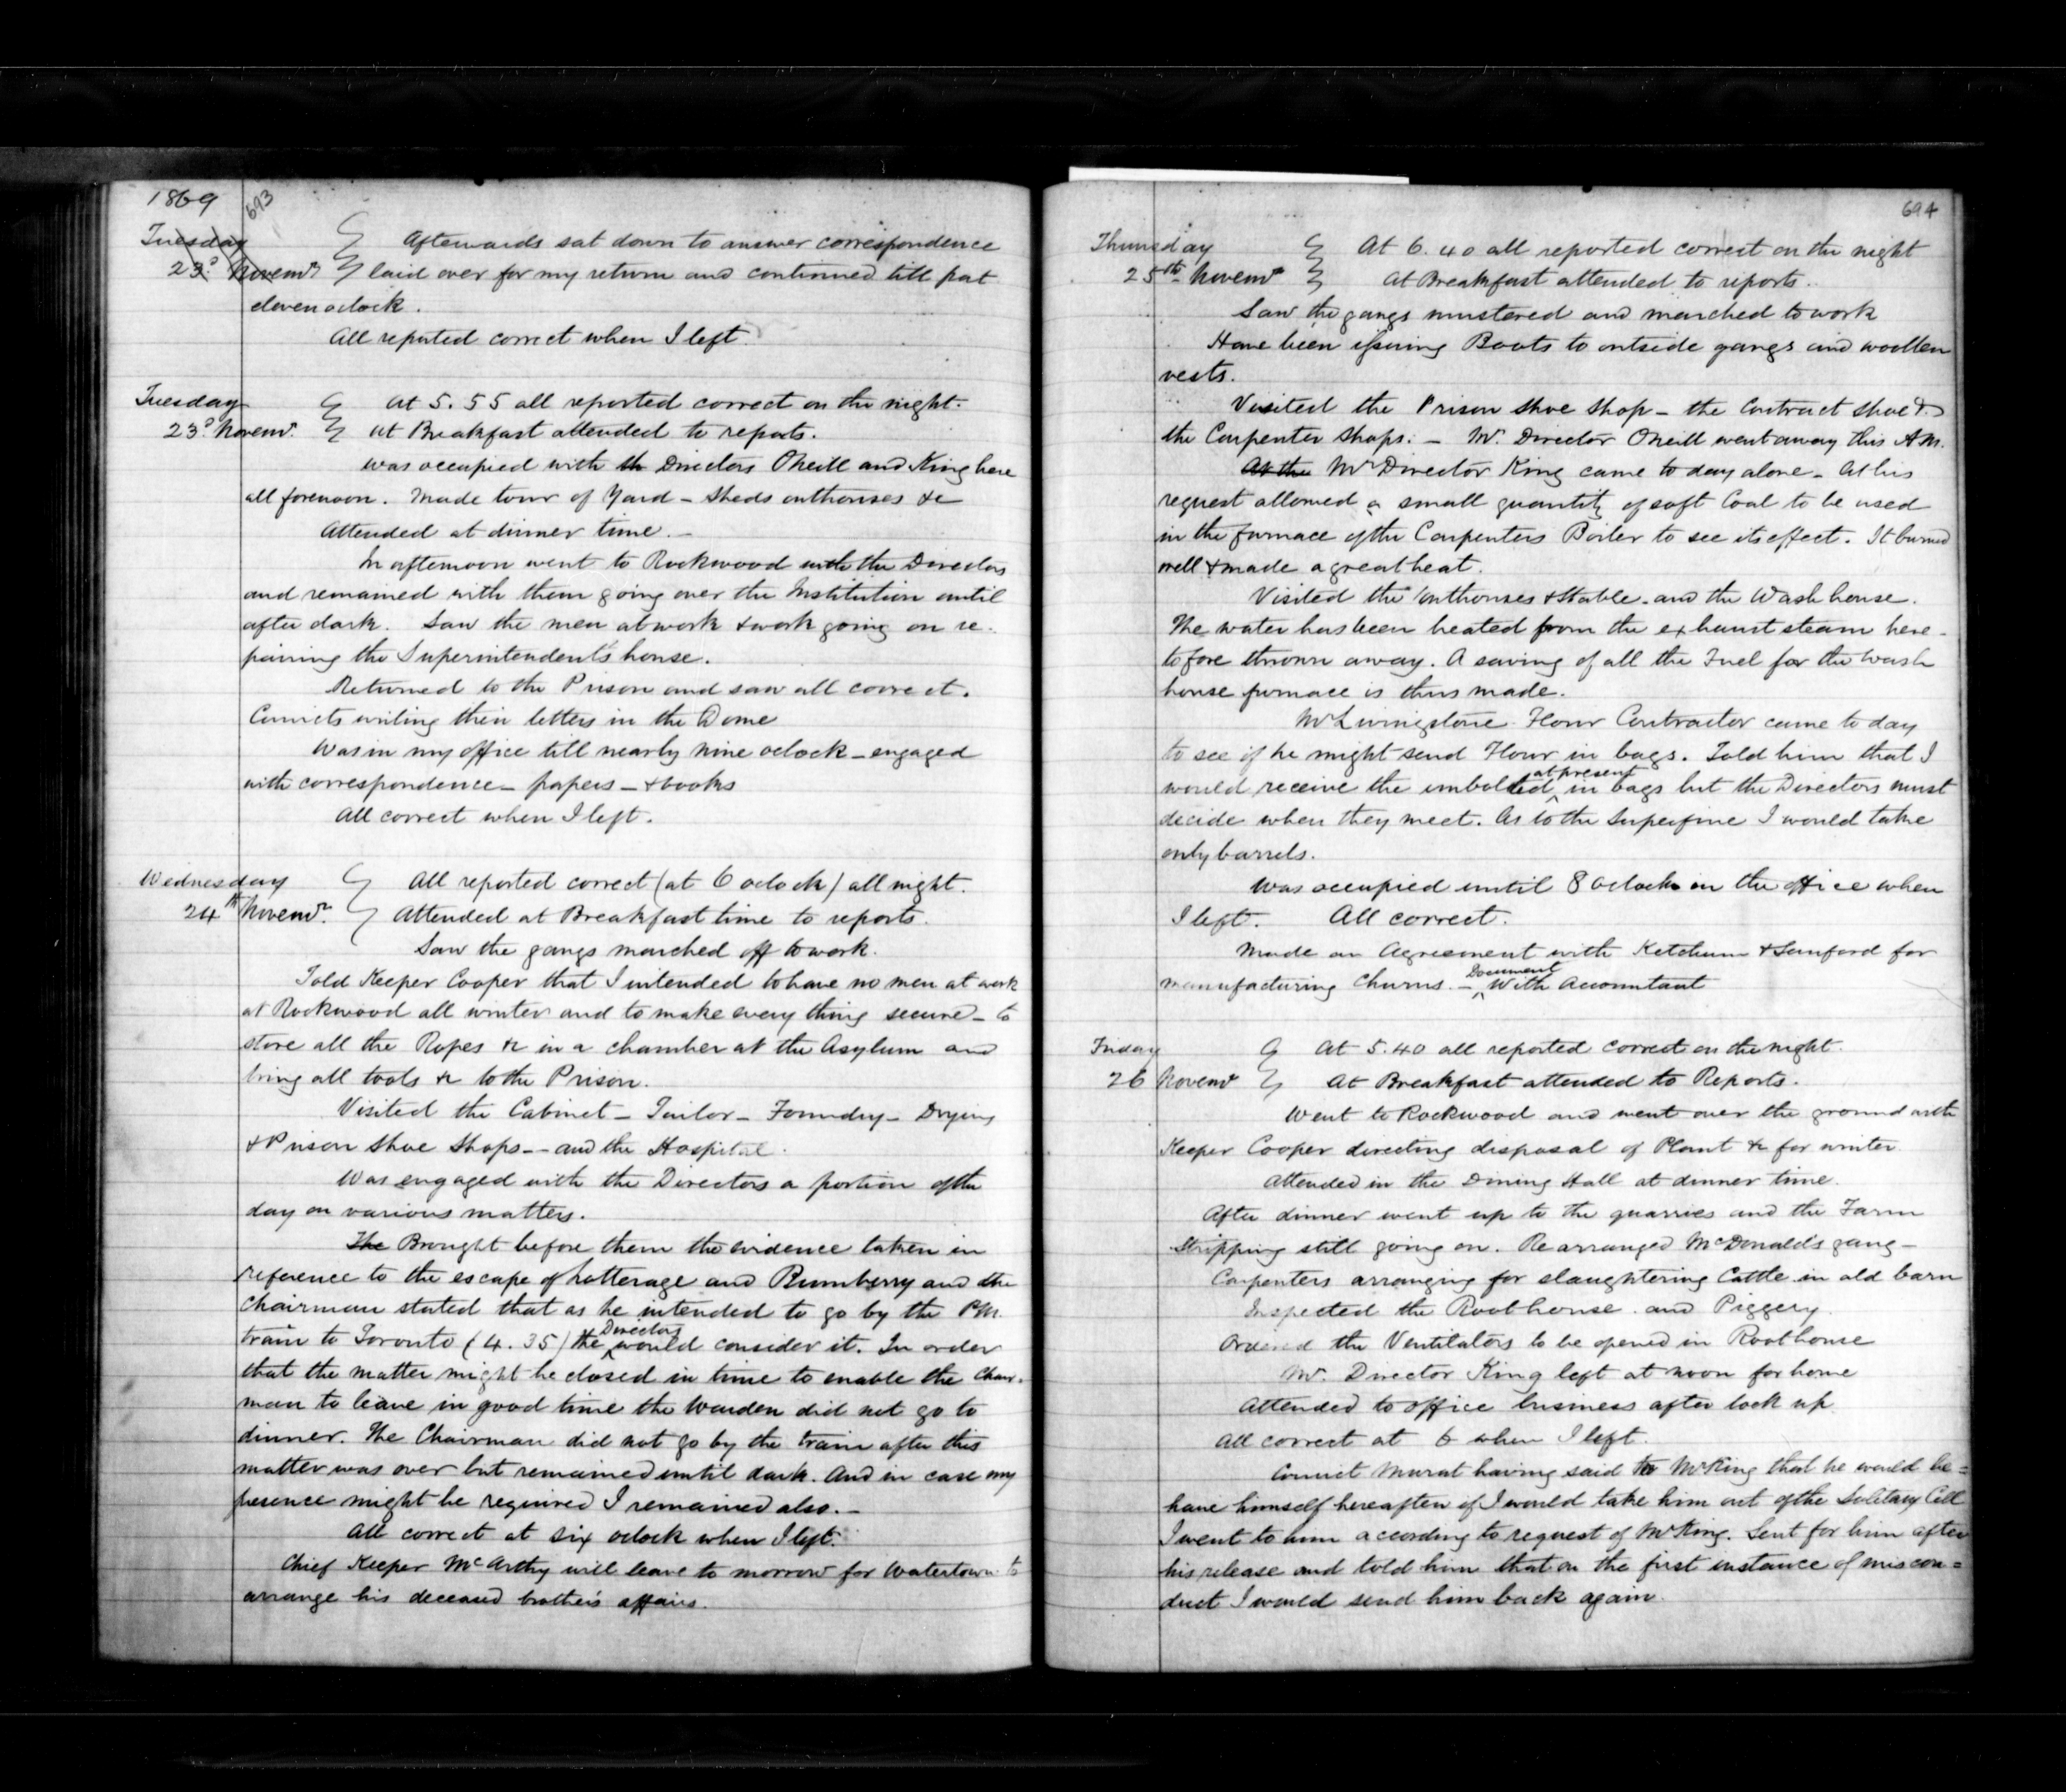 1869
693
Tuesday
23d. Novemr
Afterwards sat down to answer correspondence
laid over for my return and continued till past
eleven oclock.
All reported correct when I left.
Tuesday
23d Novemr.
At 5.55 all reported correct on the night.
At Breakfast attended to reports.
Was occupied with th Directors Oneill and King here
all forenoon. Made tour of Yard – Sheds outhouses &c
Attended at dinner time. –
In afternoon went to Rockwood with the Directors
and remained with them going over the Institution until
after dark. Saw the men at work & work going on re-
pairing the Superintendent's house.
Returned to the Prison and saw all correct.
Convicts writing their letters in the Dome
Was in my office till nearly nine oclock – engaged
with correspondence – papers – & books
All correct when I left.
Wednesday
24th Novemr.
All reported correct (at 6 oclock) all night.
Attended at Breakfast time to reports.
Saw the gangs marched off to work.
Told Keeper Cooper that I intended to have no men at work
at Rockwood all winter and to make every thing secure – to
store all the Ropes &c in a chamber at the Asylum and
bring all tools &c to the Prison.
Visited the Cabinet – Tailor – Foundry – Drying
& Prison Shoe Shops – – and the Hospital.
Was engaged with the Directors a portion of the
day on various matters.
The Brought before them the evidence taken in
reference to the escape of Latterage and Rumberry and the
Chairman stated that as he intended to go by the P.M.
train to Toronto (4.35) the Directors would consider it. In order
that the matter might be closed in time to enable the Chair-
man to leave in good time the Warden did not go to
dinner. The Chairman did not go by the train after this
matter was over but remained until dark. And in case my
presence might be required I remained also. –
All correct at six oclock when I left.
Chief Keeper McCarthy will leave to morrow for Watertown to
arrange his deceased brother's affairs.
694
Thursday
25th Novemr
At 6.40 all reported correct on the night
At Breakfast attended to reports.
Saw the gangs mustered and marched to work
Have been issuing Boots to outside gangs and woollen
vests.
Visited the Prison Shoe Shop – the Contract Shoe &
the Carpenter Shops. – Mr. Director Oneill went away this A.M.
At the Mr Director King came to day alone – At his
request allowed a small quantity of soft Coal to be used
in the furnace of the Carpenters Boiler to see its effect. It burned
well & made a great heat.
Visited the outhouses & Stable – and the Wash house.
The water has been heated from the exhaust steam here-
tofore thrown away. A saving of all the Fuel for the Wash
house furnace is thus made.
Mr Livingstone Flour Contractor came to day
to see if he might send Flour in bags. Told him that I
would receive the unbolted at present in bags but the Directors must
decide when they meet. As to the Superfine I would take
only barrels.
Was occupied until 8 oclock in the office when
I left. All correct.
Made an Agreement with Ketchum & Sanford for
manufacturing Churns. – Document With Accountant
Friday
26 Novemr
At 5.40 all reported correct on the night.
At Breakfast attended to Reports.
Went to Rockwood and went over the ground with
Keeper Cooper directing disposal of Plant &c for winter
Attended in the Dining Hall at dinner time.
After dinner went up to the quarries and the Farm
Stripping still going on. Rearranged McDonald's gang –
Carpenters arranging for slaughtering Cattle in old barn
Inspected the Root house and Piggery.
Ordered the Ventilators to be opened in Root house
Mr. Director King left at noon for home
Attended to office business after lock up
All correct at 6 when I left.
Convict Murat having said to Mr King that he would be=
have himself hereafter if I would take him out of the Solitary Cell
I went to him according to request of Mr King. Sent for him after
his release and told him that on the first instance of miscon=
duct I would send him back again.